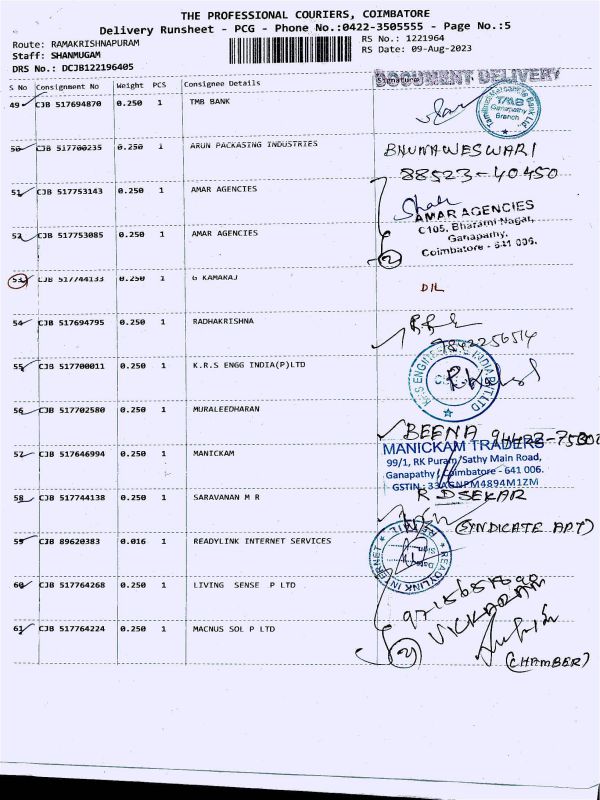 THE PROFESSIONAL COURIERS, COIMBATORE
Delivery Runsheet - PCG - Phone No.:0422-3505555 - Page No.:5
Route: RAMAKRISHNAPURAM
RS No.: 1221964
Staff: SHANMUGAM
RS Date: 09-Aug-2023
DRS No.: DCJB122196405
DOCUMENT DELIVERY
S No Consignment No Weight PCS Consignee Details Signature
49 CJB 517694870 0.250 1 TMB BANK
TMB
Ganapathy
Branch
50 CJB 517700235 0.250 1 ARUN PACKASING INDUSTRIES
BHUNAWESWARI
88523-40450
51 CJB 517753143 0.250 1 AMAR AGENCIES
AMAR AGENCIES
C105, Bharathi Nagar,
Ganapathy,
Coimbatore - 641 006.
52 CJB 517753085 0.250 1 AMAR AGENCIES
2
53 CJB 517744133 0.250 1 G KAMARAJ
DIL
54 CJB 517694795 0.250 1 RADHAKRISHNA
55 CJB 517700011 0.250 1 K.R.S ENGG INDIA(P)LTD
56 CJB 517702580 0.250 1 MURALEEDHARAN
BEENA
57 CJB 517646994 0.250 1 MANICKAM
MANICKAM TRADERS
99/1, RK Puram, Sathy Main Road,
Ganapathy, Coimbatore - 641 006.
GSTIN : 33AGNPM4894M1ZM
58 CJB 517744138 0.250 1 SARAVANAN M R
R D SEKAR
(SYNDICATE APT)
59 CJB 89620383 0.016 1 READYLINK INTERNET SERVICES
READYLINK INTERNET
60 CJB 517764268 0.250 1 LIVING SENSE P LTD
61 CJB 517764224 0.250 1 MACNUS SOL P LTD
2
(CHAMBER)